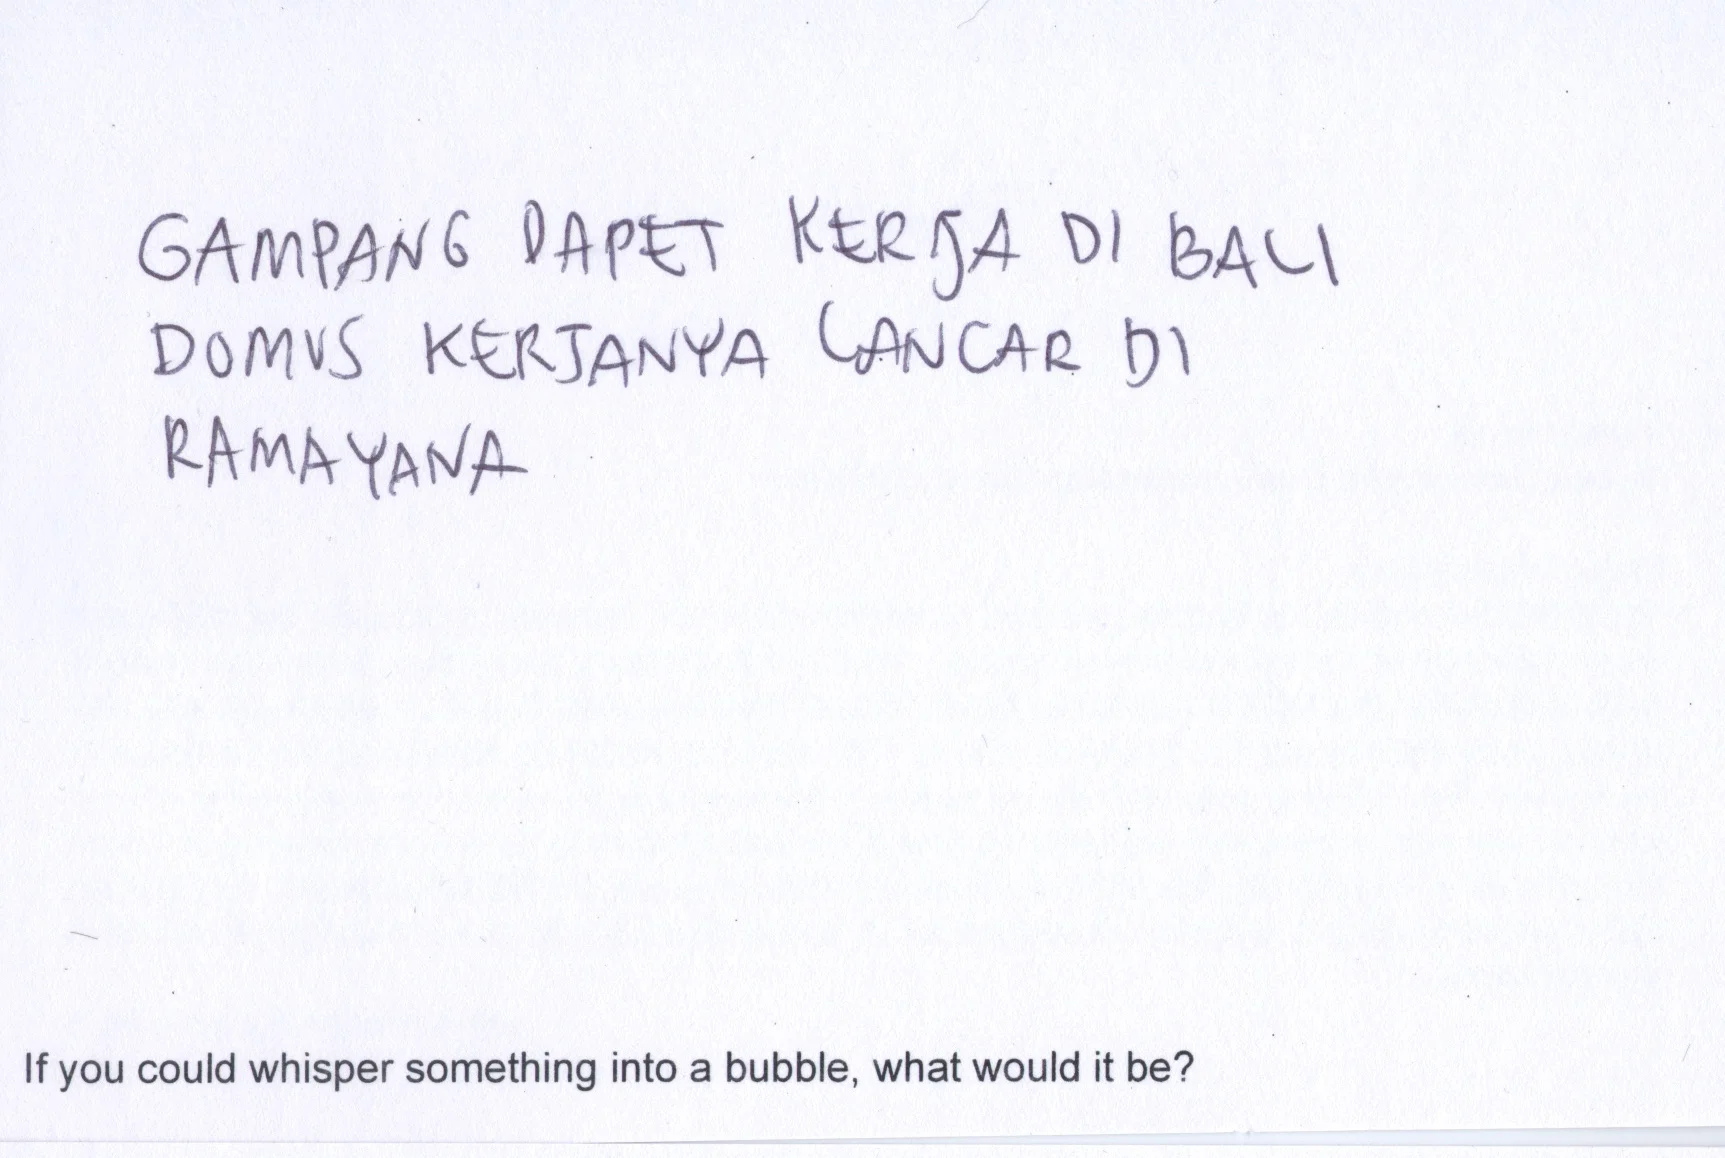 GAMPANG DAPET KERJA DI BALI
DOMUS KERJANYA LANCAR DI
RAMAYANA
If you could whisper something into a bubble, what would it be?